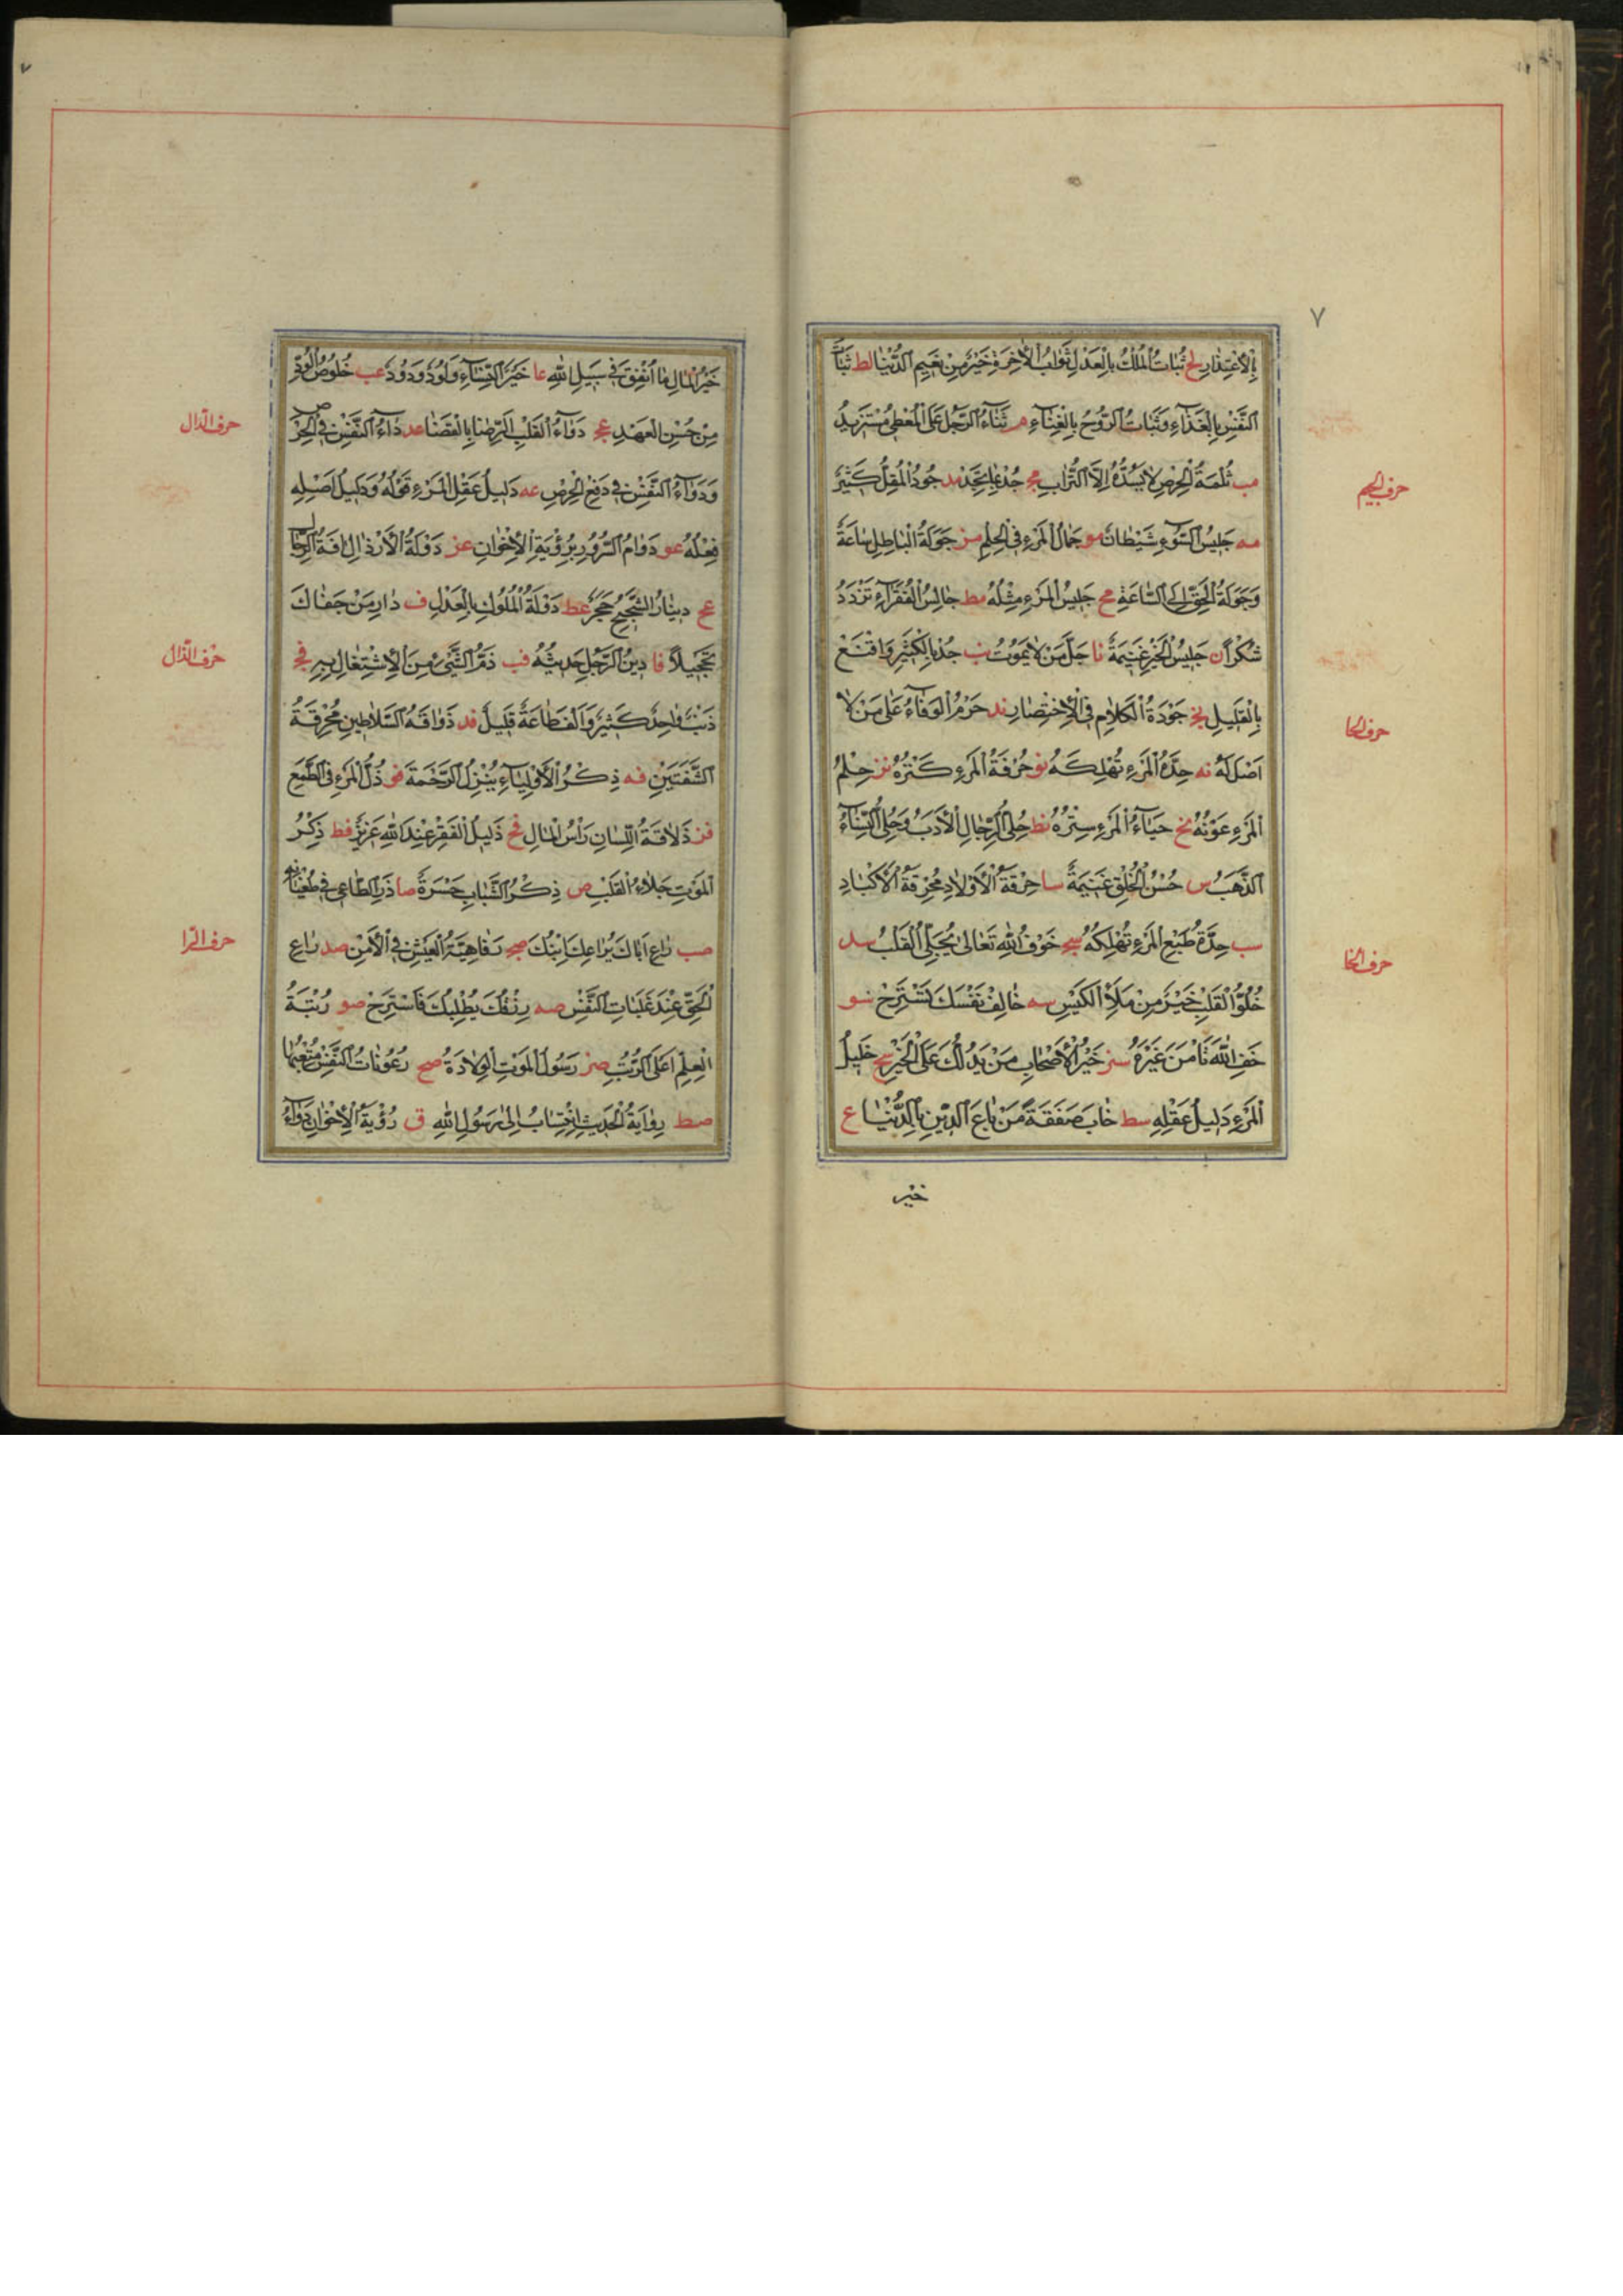 ٧
بِالْاِعْتِذَارِ لح ثُبَاتُ الْمُلْكِ بِالْعَدْلِ ثَوَابُ الْاٰخِرَةِ خَيْرٌ مِنْ نَعِيمِ الدُّنْيَا لط ثَبَاتُ
النَّفْسِ بِالْغَذَاءِ وَثَبَاتُ الرُّوحِ بِالْغِنَاءِ م ثَنَاءُ الرَّجُلِ عَلَى الْمُعْطِى مُسْتَزِيدٌ
مب ثُلْمَةُ الْحِرْصِ لَا يَسُدُّهُ اِلَّا التُّرَابِ مج جُدْ بِمَا تَجِدْ مد جُودُ الْمُقِلِّ كَثِيرٌ
حرف الجيم
مه جَلِيسُ السُّوءِ شَيْطَانٌ مو جَمَالُ الْمَرْءِ فِى الْحِلْمِ مز جَوْلَةُ الْبَاطِلِ سَاعَةٌ
وَجَوْلَةُ الْحَقِّ اِلَى السَّاعَةِ مح جَلِيسُ الْمَرْءِ مِثْلُهُ مط جَالِسِ الْفُقَرَاءَ تَزْدَدْ
شُكْرًا ن جَلِيسُ الْخَيْرِ غَنِيمَةٌ نا جَلَّ مَنْ لَا يَمُوتُ نب جُدْ بِالْكَثِيرِ وَاقْنَعْ
بِالْقَلِيلِ نج جَوْدَةُ الْكَلَامِ فِى الْاِخْتِصَارِ ند حَرُمَ الْوَفَاءُ عَلَى مَنْ لَا
حرف الحا
اَصْلَ لَهُ نه حِدَّةُ الْمَرْءِ تُهْلِكُهُ نو حُرْفَةُ الْمَرْءِ كَنْزُهُ نز حِلْمُ
الْمَرْءِ عَوْنُهُ نح حَيَاءُ الْمَرْءِ سِتْرُهُ نط حِلَى الرِّجَالِ الْاَدَبُ وَحِلَى النِّسَاءِ
الذَّهَبُ س حُسْنُ الْخُلْقِ غَنِيمَةٌ سا حِرْقَةُ الْاَوْلَادِ مُحْرِقَةُ الْاَكْبَادِ
سب حِدَّةُ طَبْعِ الْمَرْءِ تُهْلِكُهُ سج خَوْفُ اللّٰهِ تَعَالٰى يُجَلِّى الْقَلْبَ سد
حرف الخا
خُلُوُّ الْقَلْبِ خَيْرٌ مِنْ مَلَأِ الْكَيْسِ سه خَالِفْ نَفْسَكَ تَسْتَرِحْ سو
خَفِ اللّٰهَ تَأْمَنْ غَيْرَهُ سز خَيْرُ الْاَصْحَابِ مَنْ يَدُلُّكَ عَلَى الْخَيْرِ سح خَلِيلُ
الْمَرْءِ دَلِيلُ عَقْلِهِ سط خَابَ صَفَقَةً مَنْ بَاعَ الدِّينَ بِالدُّنْيَا ع
خير
٧
خَيْرُ الْمَالِ مَا اُنْفِقَ فِى سَبِيلِ اللّٰهِ عا خَيْرُ النِّسَاءِ وَلُودٌ وَدُودٌ عب خُلُوصُ الْوُدِّ
مِنْ حُسْنِ الْعَهْدِ عج دَوَاءُ الْقَلْبِ الرِّضَا بِالْقَضَا عد دَاءُ النَّفْسِ فِى الْحِرْصِ
حرف الدال
وَدَوَاءُ النَّفْسِ فِى دَفْعِ الْحِرْصِ عه دَلِيلُ عَقْلِ الْمَرْءِ قَوْلُهُ وَدَلِيلُ اَصْلِهِ
فِعْلُهُ عو دَوَامُ السُّرُورِ بِرُؤْيَةِ الْاِخْوَانِ عز دَوْلَةُ الْاَرْذَالِ اٰفَةُ الرِّجَالِ
عح دِينَارُ الشَّحِيحِ حَجَرٌ عط دَوْلَةُ الْمُلُوكِ بِالْعَدْلِ ف دَارِ مَنْ جَفَاكَ
تَخْجِيلًا فا دِينُ الرَّجُلِ حَدِيثُهُ فب ذَمُّ الشَّىْءِ مِنَ الْاِشْتِغَالِ بِهِ فج
حرف الذال
ذَنْبٌ وَاحِدٌ كَثِيرٌ وَاَلْفُ طَاعَةٍ قَلِيلٌ فد ذَوَاقَةُ السَّلَاطِينِ مُحْرِقَةُ
الشَّفَتَيْنِ فه ذِكْرُ الْاَوْلِيَاءِ يُنْزِلُ الرَّحْمَةَ فو ذُلُّ الْمَرْءِ فِى الطَّمَعِ
فز ذَلَاقَةُ اللِّسَانِ رَأْسُ الْمَالِ فح ذَلِيلُ الْفَقْرِ عِنْدَ اللّٰهِ عَزِيزٌ فط ذِكْرُ
الْمَوْتِ جَلَاءُ الْقَلْبِ ص ذِكْرُ الشَّبَابِ حَسْرَةٌ صا ذَرِ الطَّاغِى فِى طُغْيَانِهِ
صب رَاعِ اَبَاكَ يُرَاعِكَ اِبْنُكَ صج رَفَاهِيَّةُ الْعَيْشِ فِى الْاَمْنِ صد رَاعِ
حرف الرا
الْحَقَّ عِنْدَ غَلَبَاتِ النَّفْسِ صه رِزْقُكَ يَطْلُبُكَ فَاسْتَرِحْ صو رُتْبَةُ
الْعِلْمِ اَعْلَى الرُّتَبِ صز رَسُولُ الْمَوْتِ الْوِلَادَةُ صح رُعُونَاتُ النَّفْسِ مُتْعِبُهَا
صط رِوَايَةُ الْحَدِيثِ اِنْتِسَابٌ اِلٰى رَسُولِ اللّٰهِ ق رُؤْيَةُ الْاِخْوَانِ دَوَاءُ